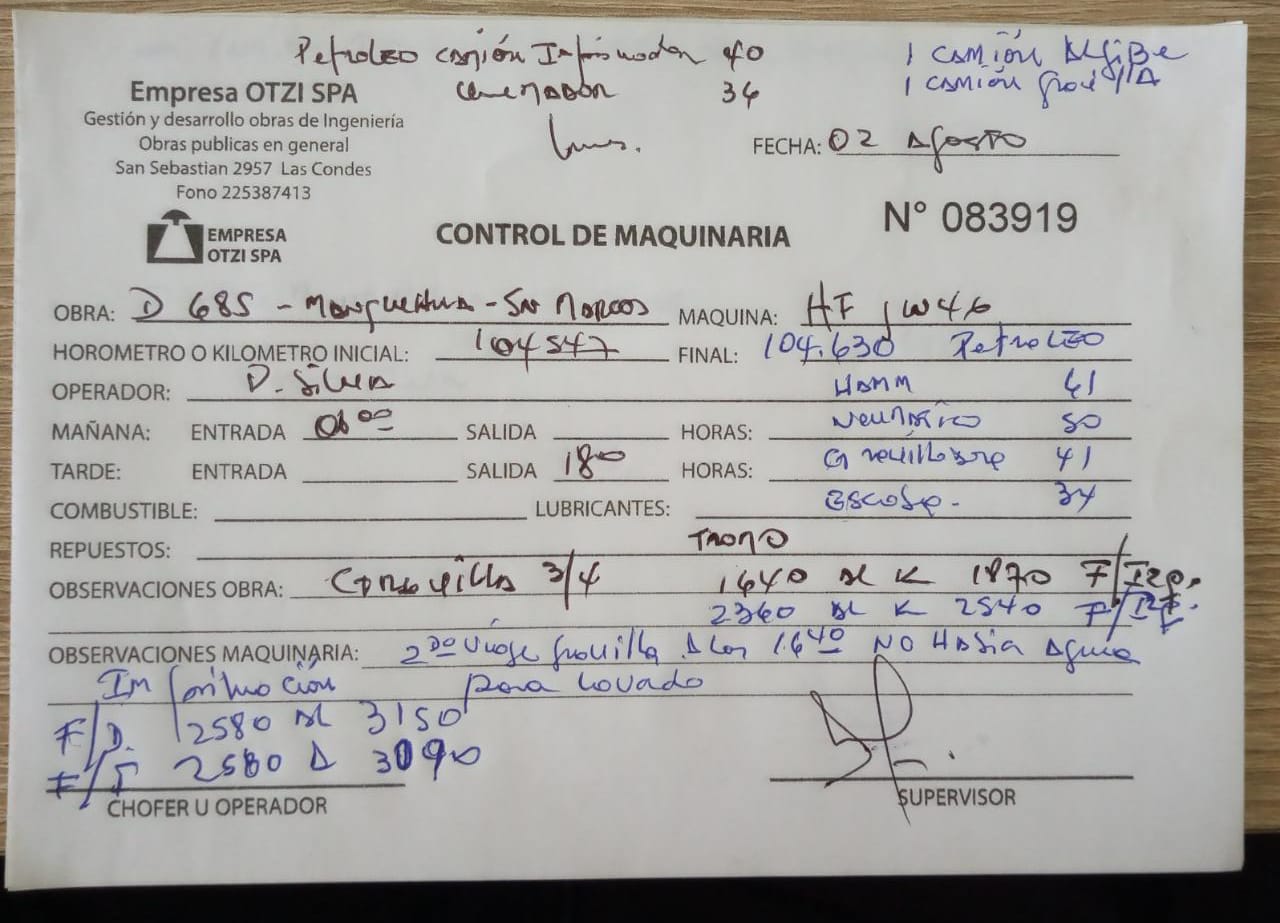 Petroleo camión Imprimador 40
Quemador 34
1 camión Algibe
1 camión Gravilla
Empresa OTZI SPA
Gestión y desarrollo obras de Ingeniería
Obras publicas en general
San Sebastian 2957 Las Condes
Fono 225387413
FECHA: 02 Agosto
N° 083919
EMPRESA
OTZI SPA
CONTROL DE MAQUINARIA
OBRA: D 685 - - San Marcos MAQUINA: HF JW46
HOROMETRO O KILOMETRO INICIAL: 104547 FINAL: 104.630 Petroleo
OPERADOR: D. Silva HAMM 61
MAÑANA: ENTRADA 08 00 SALIDA HORAS: Neumático 50
TARDE: ENTRADA SALIDA 18 00 HORAS: Gravilladora 41
COMBUSTIBLE: LUBRICANTES: Escoba - 34
REPUESTOS: Tramo
OBSERVACIONES OBRA: Gravilla 3/4 1640 al K 1870 F/Izq.
2360 al K 2540 F/Izq.
OBSERVACIONES MAQUINARIA: 2do Viaje gravilla a las 16 40 NO Habia Agua
Imprimación para lavado
F/D. 2580 al 3150
F/I 2580 A 3090
CHOFER U OPERADOR
SUPERVISOR